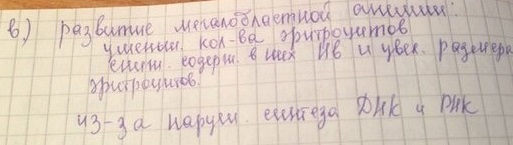 в) развитие мегалобластной анемии:
уменьш. кол-ва эритроцитов
сниж. содерж. в них Hb и увел. размера
эритроцитов.
из-за наруш. синтеза ДНК и РНК